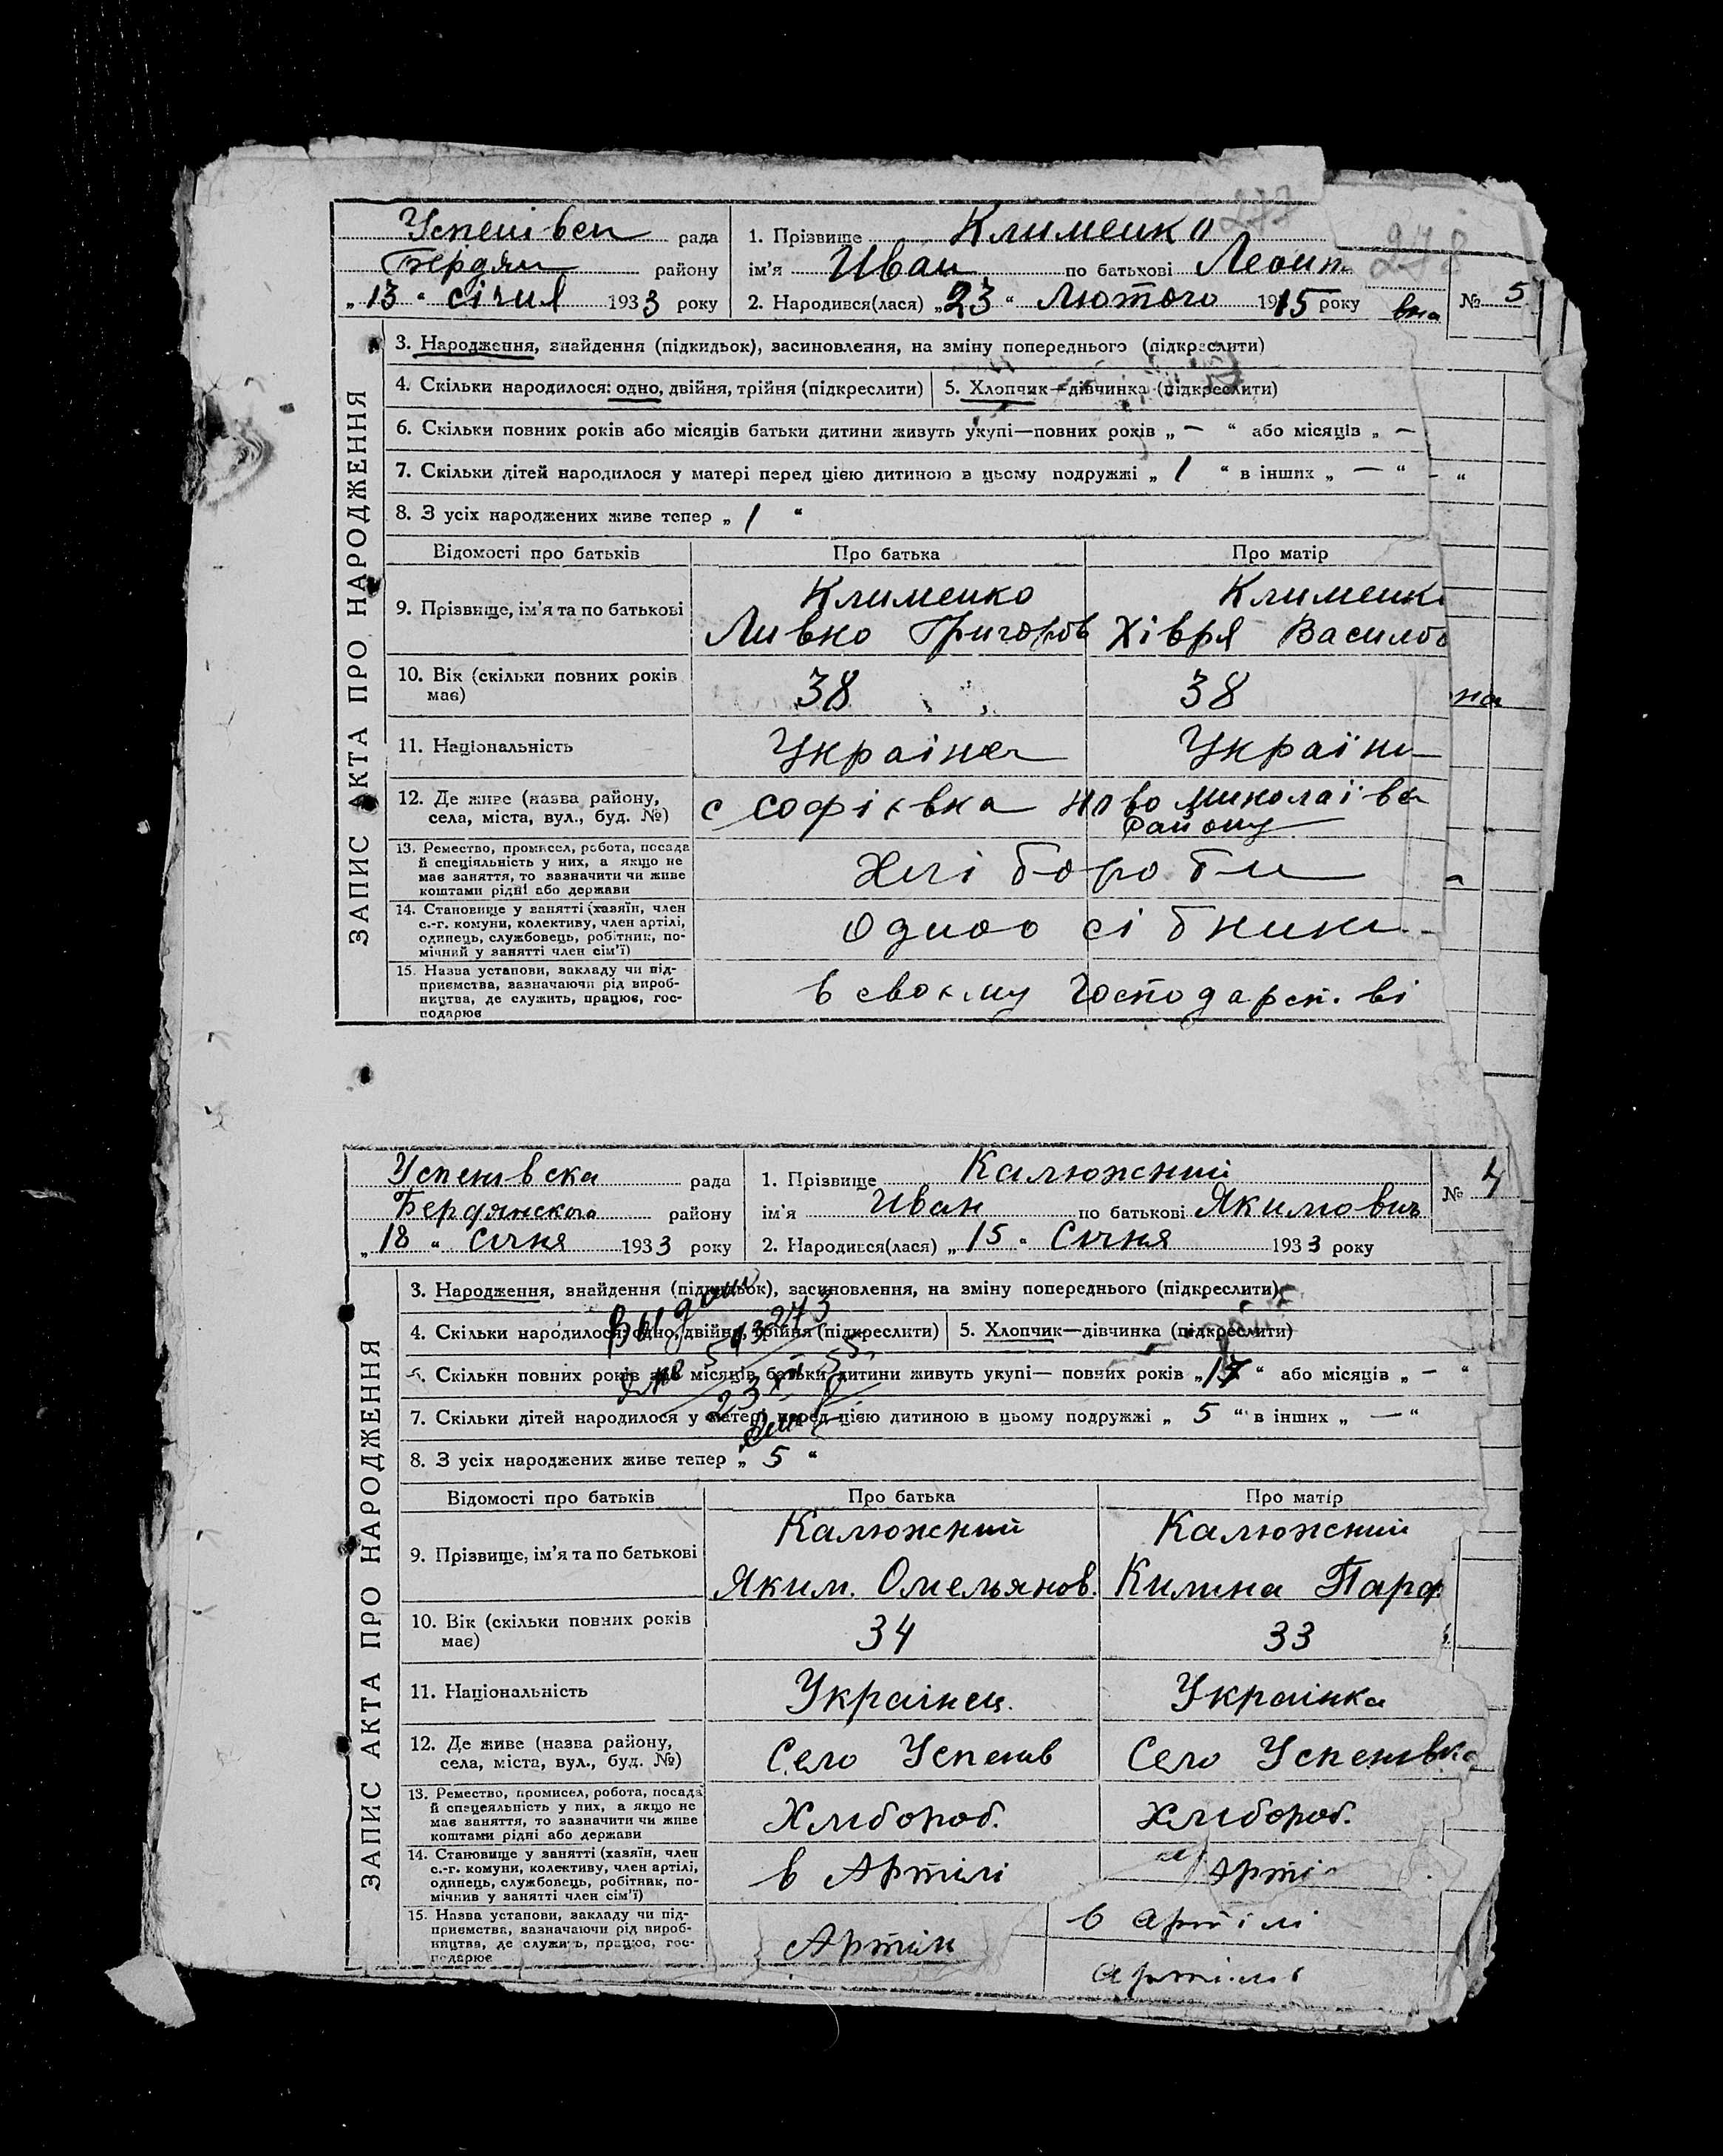 273
278
Успенівсп рада
Бердян району
„13“ січня 1933 року
1. Прізвище Клименко
ім'я Иван по батькові Леонт
2. Народився(лася) „23“ Лютого 1915 року
вна
№ 5
ЗАПИС АКТА ПРО НАРОДЖЕННЯ
3. Народження, знайдення (підкидьок), засиновлення, на зміну попереднього (підкреслити)
4. Скільки народилося: одно, двійня, трійня (підкреслити) 5. Хлопчик—дівчинка (підкреслити)
6. Скільки повних років або місяців батьки дитини живуть укупі—повних років „—“ або місяців „—
7. Скільки дітей народилося у матері перед цією дитиною в цьому подружжі „1“ в інших „—“
8. З усіх народжених живе тепер „1“
Відомості про батьків Про батька Про матір
9. Прізвище, ім'я та по батькові
Клименко Клименк
Ливко Григоров Хівря Василь
10. Вік (скільки повних років має) 38 38
на
11. Національність Українец Україн
12. Де живе (назва району, села, міста, вул., буд. №)
с Софіївка Ново Миколаївс
району
13. Ремество, промисел, робота, посада й спеціяльність у них, а якщо не має заняття, то зазначити чи живе коштами рідні або держави
Хліборобы
14. Становище у занятті (хазяїн, член с.-г. комуни, колективу, член артілі, одинець, службовець, робітник, помічний у занятті член сім'ї)
Одноосібники
15. Назва установи, закладу чи підприємства, вазначаючи рід виробництва, де служить, працює, господарює
в своєму Господарсп. ві
Успенивска рада
Бердянского району
„18“ Січня 1933 року
1. Прізвище Калюжний
ім'я Иван по батькові Якимович
2. Народився(лася) „15“ Січня 1933 року
№ 4
ЗАПИС АКТА ПРО НАРОДЖЕННЯ
3. Народження, знайдення (підкидьок), засиновлення, на зміну попереднього (підкреслити)
4. Скільки народилося: одно, двійня, трійня (підкреслити) 5. Хлопчик—дівчинка (підкреслити)
6. Скільки повних років або місяців батьки дитини живуть укупі— повних років „17“ або місяців „—“
7. Скільки дітей народилося у матері перед цією дитиною в цьому подружжі „5“ в інших „—“
8. З усіх народжених живе тепер „5“
Відомості про батьків Про батька Про матір
9. Прізвище, ім'я та по батькові
Калюжний Калюжний
Яким. Омельянов. Килина Парф
10. Вік (скільки повних років має) 34 33
11. Національність Українец. Українка
12. Де живе (назва району, села, міста, вул., буд. №)
Село Успенив Село Успенивка
13. Ремество, промисел, робота, посада й спецеяльність у них, а якщо не має заняття, то зазначити чи живе коштами рідні або держави
Хлибороб. Хлибороб.
14. Становище у занятті (хазяїн, член с.-г. комуни, колективу, член артілі, одинець, службовець, робітник, помічнив у занятті член сім'ї)
в Артілі Арті
15. Назва установи, закладу чи підприємства, вазначаючи рід виробництва, де служить, працює, господарює
Артіли
в артілі
артіль